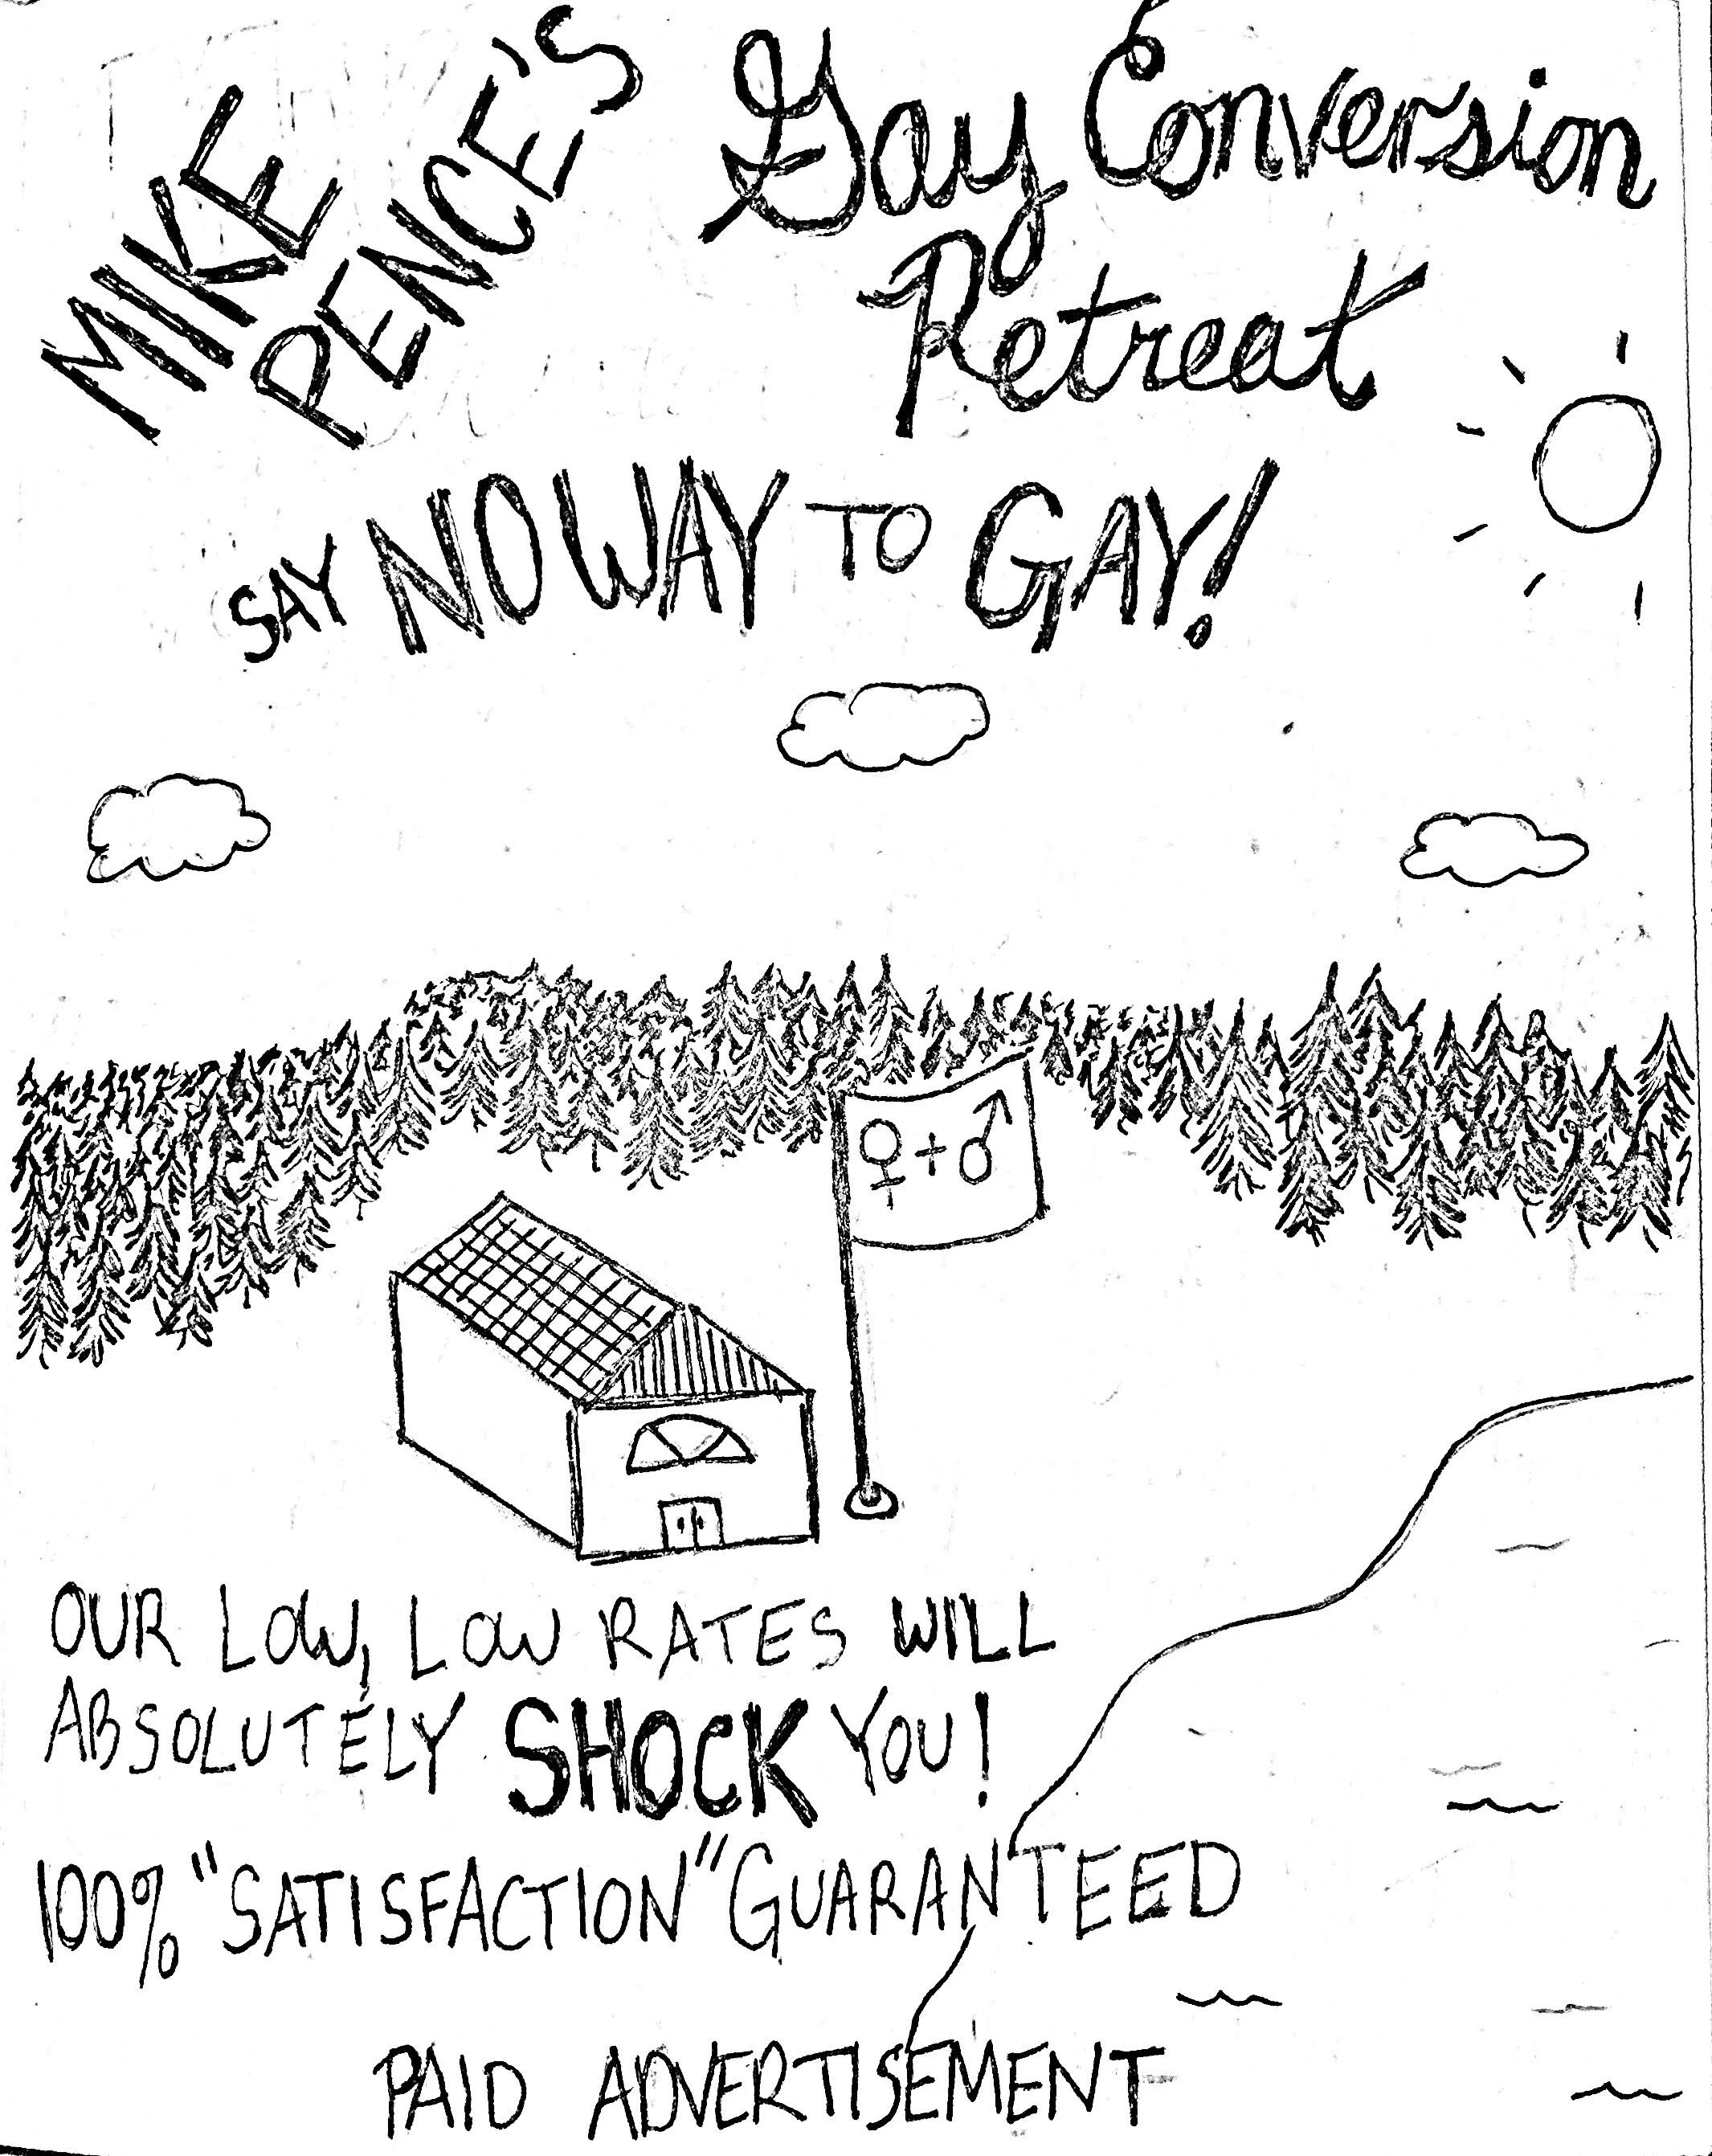 MIKE
PENCE'S
Gay Conversion
Retreat
SAY NO WAY TO GAY!
♀+♂
OUR LOW, LOW RATES WILL
ABSOLUTELY SHOCK YOU!
100% "SATISFACTION" GUARANTEED
PAID ADVERTISEMENT